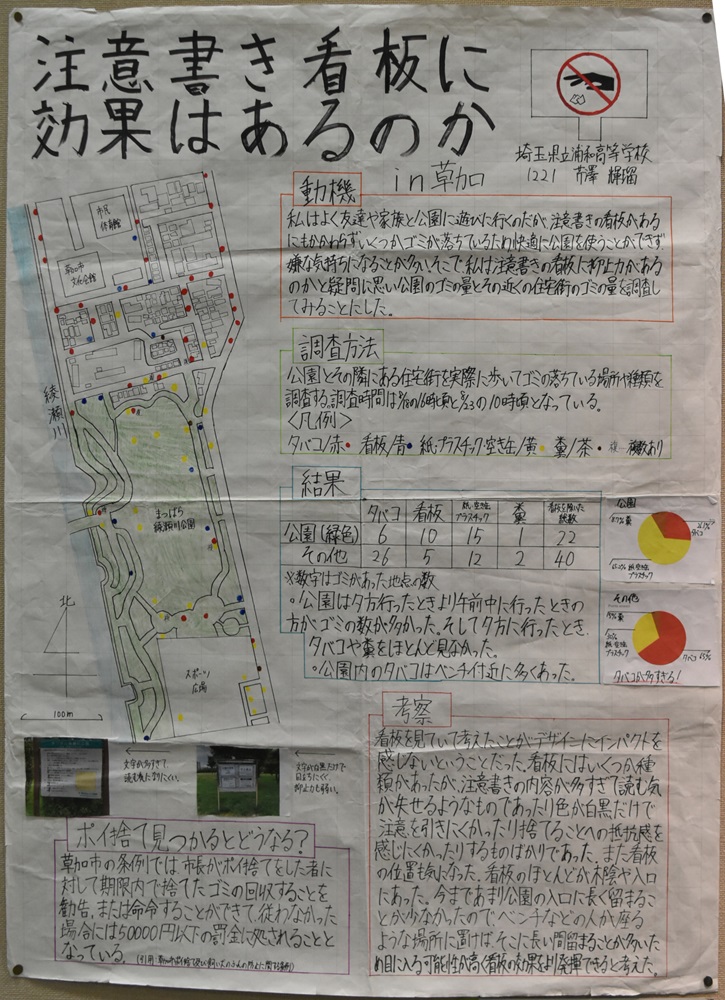 注意書き看板に
効果はあるのか
in草加
埼玉県立浦和高等学校
1221 市澤 輝瑠
動機
私はよく友達や家族と公園に遊びに行くのだが、注意書きの看板がある
にもかかわらずいくつかゴミが落ちているため快適に公園を使うことができず
嫌な気持ちになることが多い。そこで、私は注意書きの看板に抑止力がある
のかと疑問に思い公園のゴミの量とその近くの住宅街のゴミの量を調査し
てみることにした。
調査方法
公園とその隣にある住宅街を実際に歩いてゴミの落ちている場所や種類を
調査する。調査時間は の16時頃と の10時頃となっている。
<凡例>
タバコ/赤・看板/青・紙・プラスチック・空き缶/黄・糞/茶・ 複数あり
結果
タバコ 看板 紙・空き缶 プラスチック 糞 看板を除いた総数
公園(緑色) 6 10 15 1 22
その他 26 5 12 2 40
※数字はゴミがあった地点の数
。公園は夕方行ったときより午前中に行ったときの
方がゴミの数が多かった。そして夕方に行ったとき、
タバコや糞をほとんど見なかった。
。公園内のタバコはベンチ付近に多くあった。
公園
糞
タバコ
紙・空き缶
プラスチック
その他
糞
紙・空き缶
プラスチック
タバコ 65%
タバコが多すぎる!
市民
体育館
草加市
文化会館
綾瀬川
まつばら
綾瀬川公園
北
スポーツ
広場
100m
文字が多すぎて
読む気になりにくい。
文字が白黒だけで
目立ちにくく
抑止力も弱い。
ポイ捨て見つかるとどうなる?
草加市の条例では市長がポイ捨てをした者に
対して期限内で捨てたゴミの回収することを
勧告、または命令することができて、従わなかった
場合には50000円以下の罰金に処されることと
なっている。
考察
看板を見ていて考えたことがデザインにインパクトを
感じないということだった。看板にはいくつか種
類があったが、注意書きの内容が多すぎて読む気
が失せるようなものであったり色が白黒だけで
注意を引きにくかったり捨てることへの抵抗感を
感じにくかったりするものばかりであった。また看板
の位置も気になった。看板のほとんどが木陰や入口
にあった。今まであまり公園の入口に長く留まるこ
とが少なかったので、ベンチなどの人が座る
ような場所に置けば、そこに長い間留まることが多いた
め目に入る可能性が高く看板の効果をより発揮できると考えた。